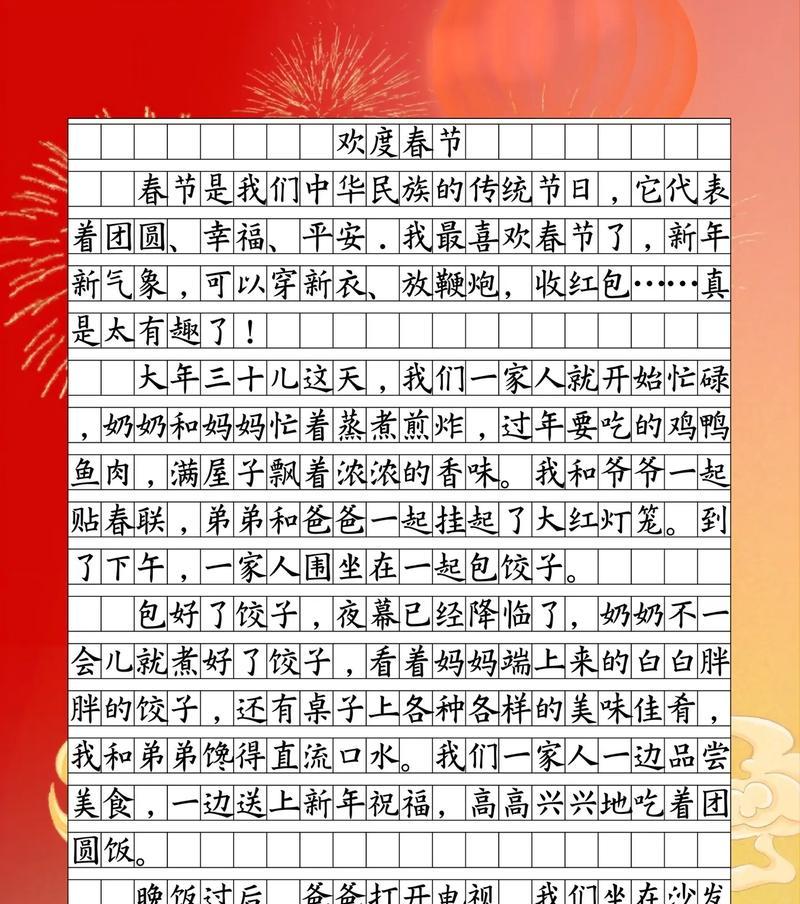 欢度春节
春节是我们中华民族的传统节日，它代表
着团圆、幸福、平安．我最喜欢春节了，新年
新气象，可以穿新衣、放鞭炮，收红包……真
是太有趣了！
大年三十儿这天，我们一家人就开始忙碌
，奶奶和妈妈忙着蒸煮煎炸，过年要吃的鸡鸭
鱼肉，满屋子飘着浓浓的香味。我和爷爷一起
贴春联，弟弟和爸爸一起挂起了大红灯笼。到
了下午，一家人围坐在一起包饺子。
包好了饺子，夜幕已经降临了，奶奶不一
会儿就煮好了饺子，看着妈妈端上来的白白胖
胖的饺子，还有桌子上各种各样的美味佳肴，
我和弟弟馋得直流口水。我们一家人一边品尝
美食，一边送上新年祝福，高高兴兴地吃着团
圆饭。
晚饭过后　爸爸打开电视　我们坐在沙发